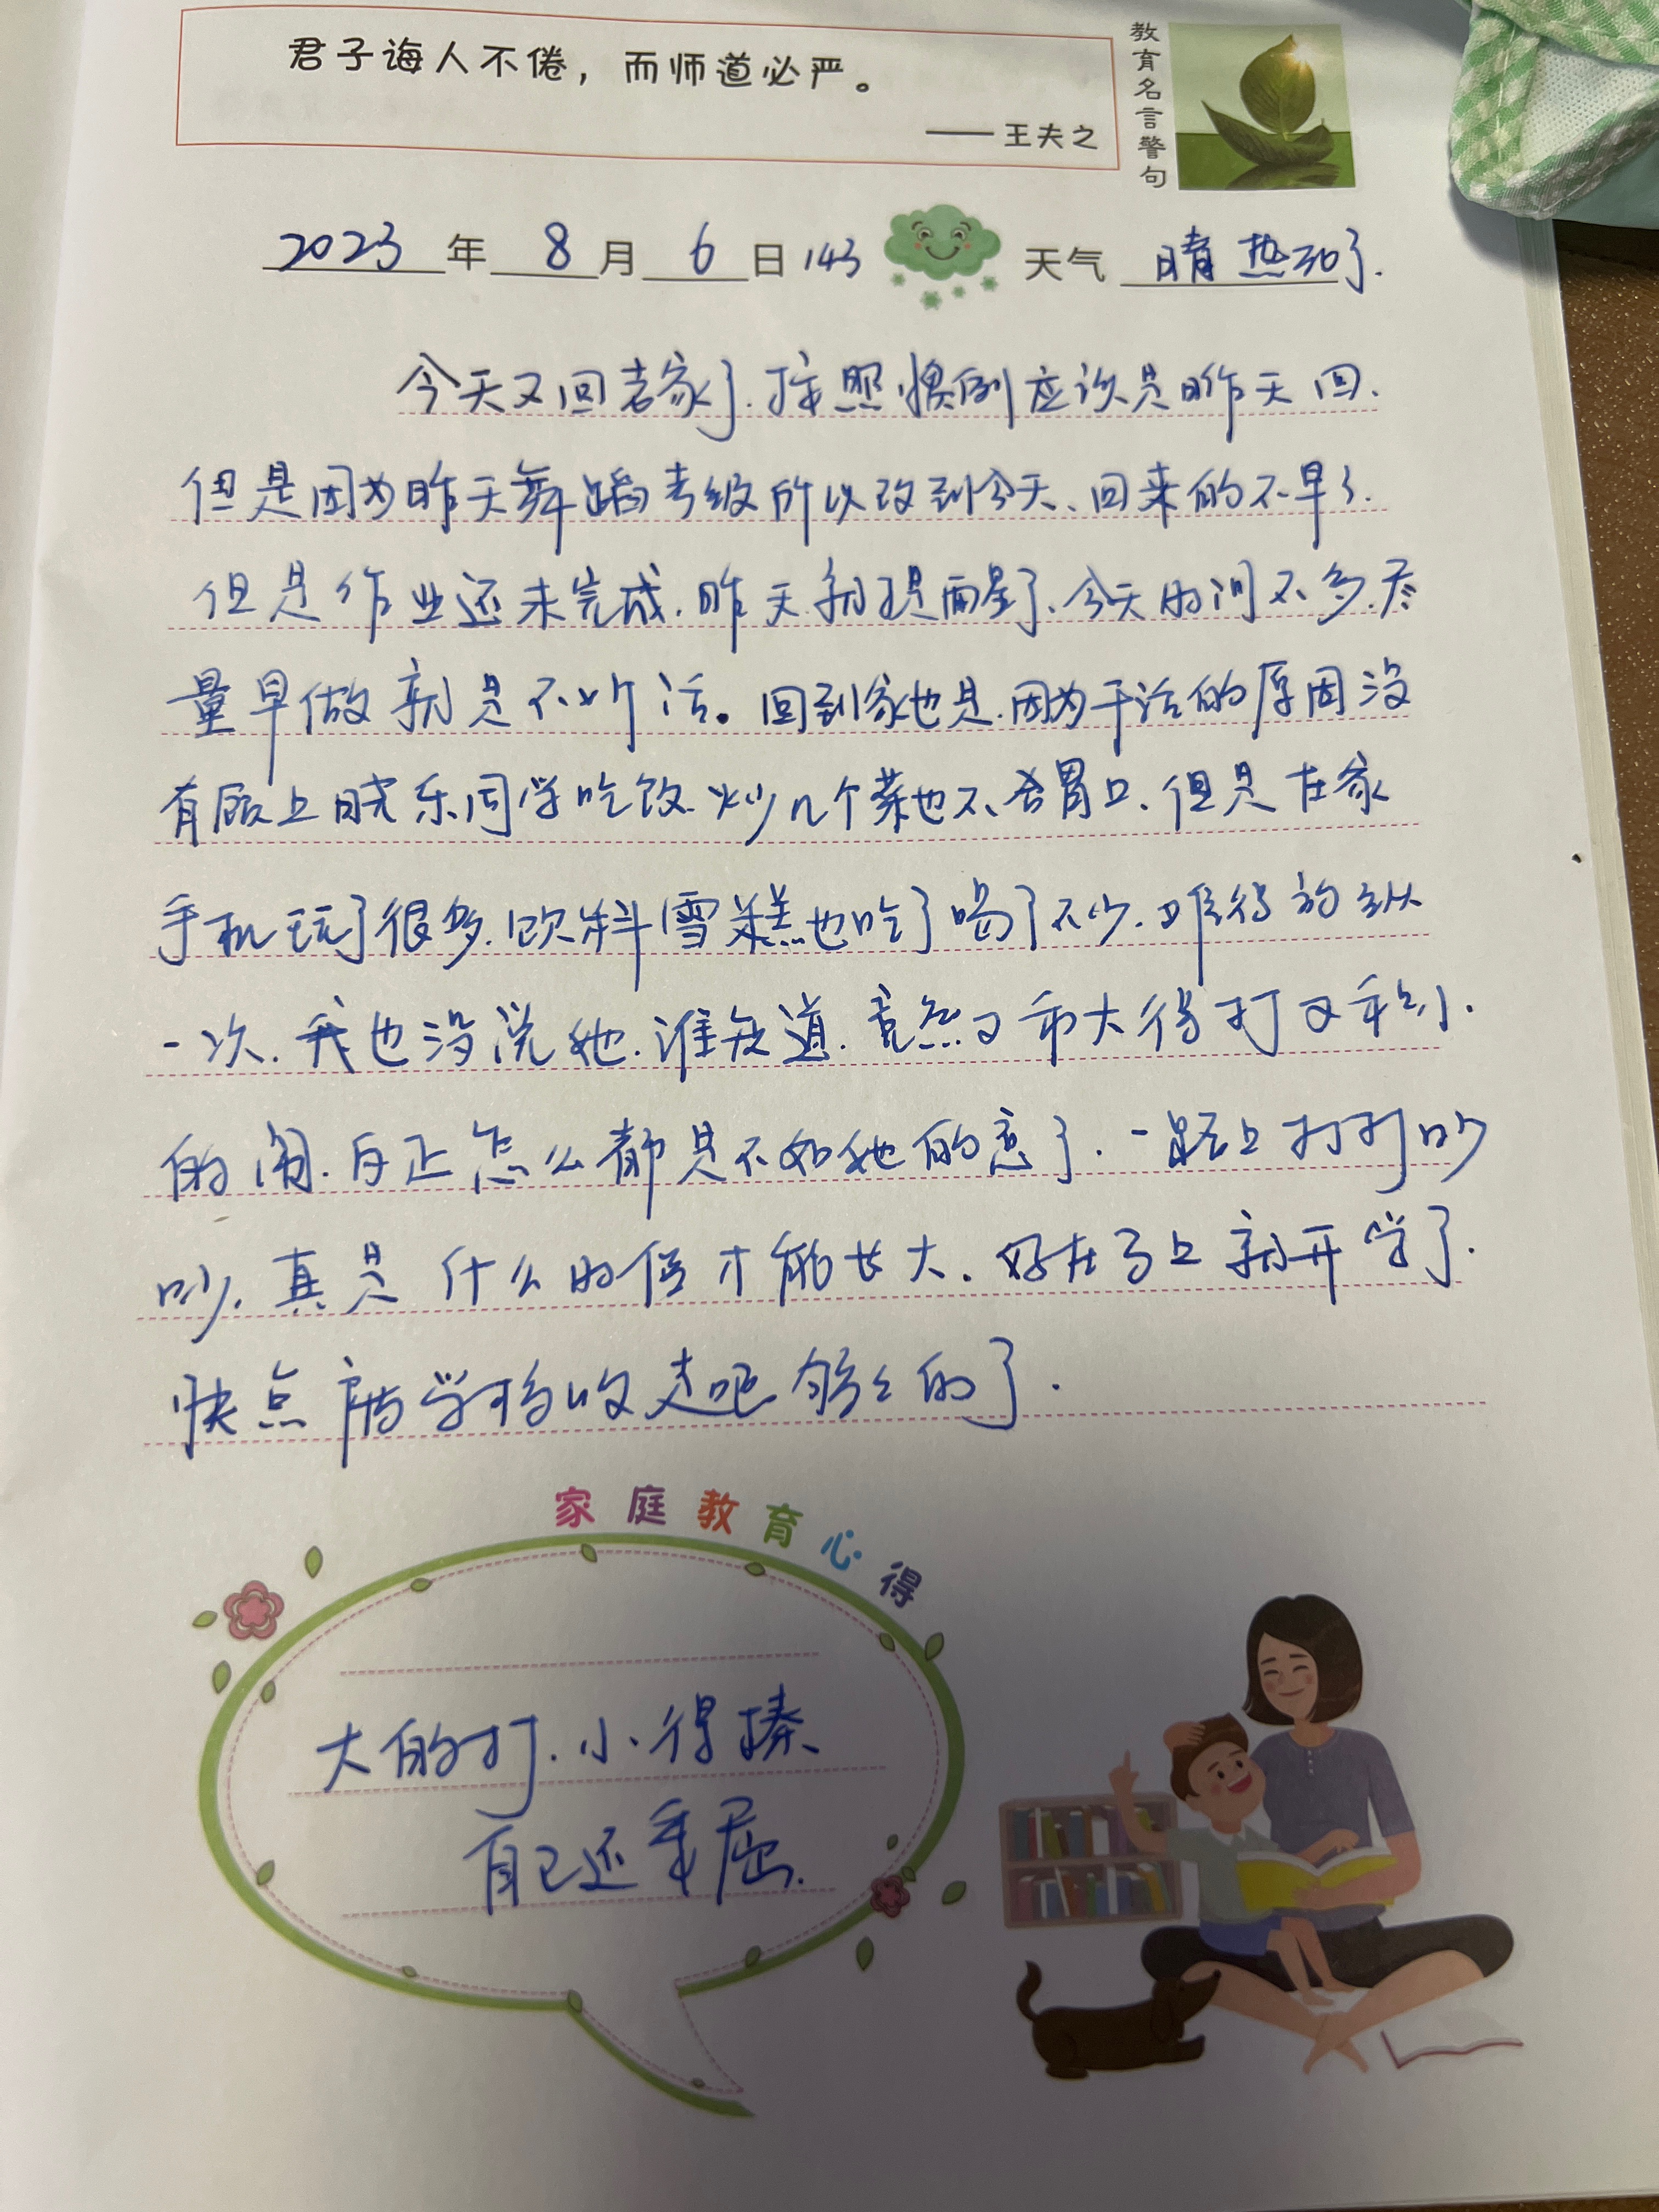 君子诲人不倦，而师道必严。
——王夫之
教育名言警句
2023年8月6日 143 天气 晴 热
今天又回老家了.按照惯例应该是昨天回.
但是因为昨天舞蹈考级所以改到今天、回来的不早了.
但是作业还未完成.昨天就提醒了、今天时间不多.尽
量早做就是不听话。回到家也是.因为干活的原因没
有顾上晓乐同学吃饭.炒几个菜也不合胃口、但是在家
手机玩了很多.饮料雪糕也吃了喝了不少.难得放纵
一次.我也没说她.谁知道.竟然又和大得打又和小.
的闹.反正怎么都是不如她的意了.一路上打打吵
吵.真是什么时候才能长大.好在马上就开学了.
快点被学校收走吧够够的了.
家庭教育心得
大的打.小得揍、
自己还委屈.